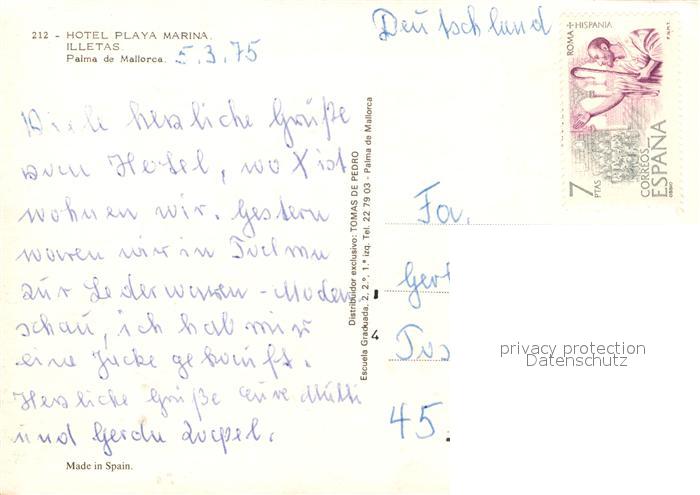 212 - HOTEL PLAYA MARINA.
ILLETAS.
Palma de Mallorca.
5.3.75
Viele herzliche Grüße
vom Hotel, wo X ist
wohnen wir. Gestern
waren wir in Palma
zur Lederwaren-Moden
schau, ich hab mir
eine Jacke gekauft.
Herzliche Grüße Eure Mutti
und Gerda
Made in Spain.
Distribuidor exclusivo: TOMAS DE PEDRO
Escuela Graduada, 2, 2.º, 1.ª izq. Tel. 22 79 03 - Palma de Mallorca
Deutschland
ROMA + HISPANIA
7
PTAS
CORREOS
ESPAÑA
F.N.M.T.
Fa.
Gert
45
privacy protection
Datenschutz